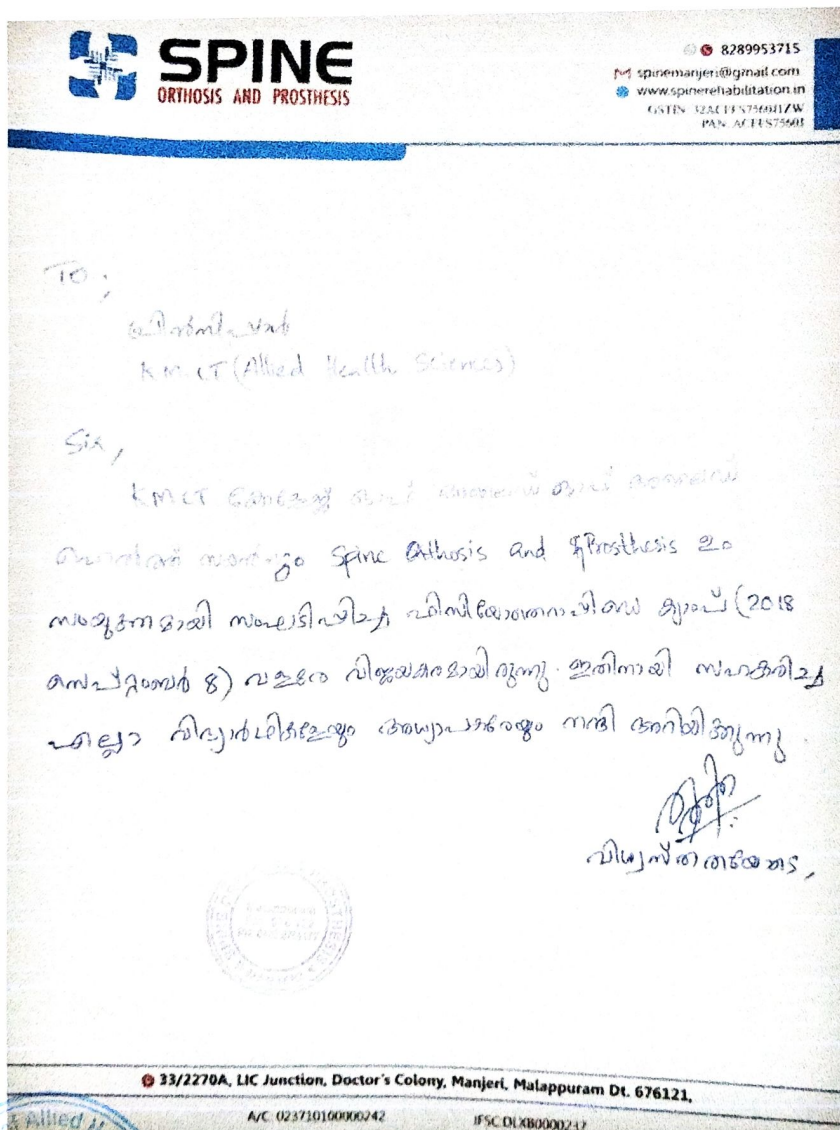 SPINE
ORTHOSIS AND PROSTHESIS
8289953715
spinemanjeri@gmail.com
www.spinerehabilitation.in
GSTIN
PAN
To ;
പ്രിൻസിപ്പാൾ
KMCT (Allied Health Sciences)
Sir,
KMCT കോളേജ് ഓഫ് അലൈഡ് ഓഫ് അലൈഡ്
ഹെൽത്ത് സയൻസും Spine Othosis and Prosthesis ഉം
സംയുക്തമായി സംഘടിപ്പിച്ച ഫിസിയോതെറാപ്പി ക്യാംപ് (2018
സെപ്റ്റംബർ 8) വളരെ വിജയകരമായിരുന്നു. ഇതിനായി സഹകരിച്ച
എല്ലാ വിദ്യാർഥികളേയും അധ്യാപകരേയും നന്ദി അറിയിക്കുന്നു.
വിശ്വസ്തതയോടെ,
33/2270A, LIC Junction, Doctor's Colony, Manjeri, Malappuram Dt. 676121,
A/C: 023710100000242 IFSC:DLXB0000237
Allied